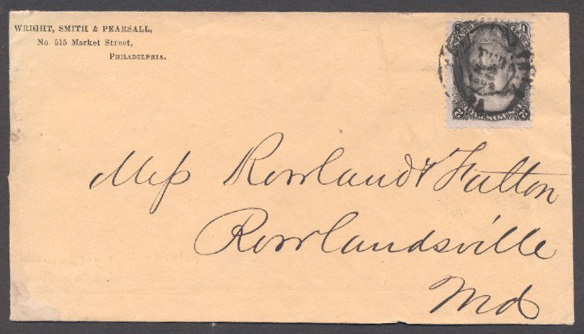 WRIGHT, SMITH & PEARSALL,
No. 515 Market Street,
PHILADELPHIA.
Mess Rowland & Fulton
Rowlandsville
Md